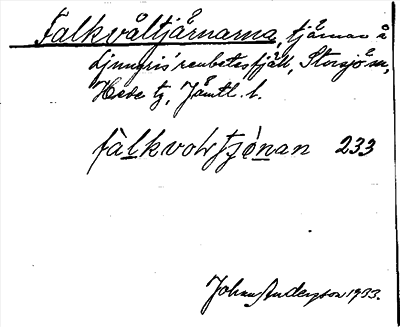 Falkvåltjärnarna, tjärnar å
Ljungris' renbetesfjäll, Storsjö sn,
Hede tg, Jämtl. l.
falkvoltjɔ́nan 233
Johan Anderzon 1933.